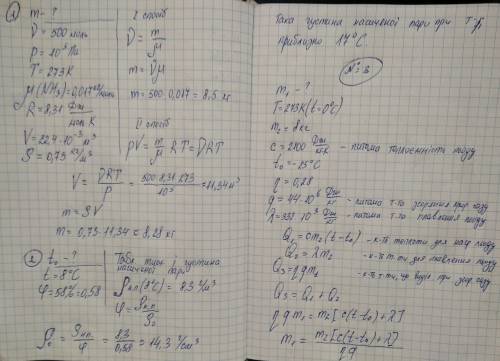 ①
m - ?
ν = 500 моль
p = 10⁵ Па
T = 273 К
μ(NH₃) = 0,017 кг/моль
R = 8,31 Дж/моль К
V = 22,4·10⁻³ м³
ρ = 0,73 кг/м³
I спосіб
ν = m/μ
m = νμ
m = 500·0,017 = 8,5 кг
II спосіб
pV = m/μ RT = νRT
V = νRT/p = 500·8,31·273/10⁵ = 11,34 м³
m = ρV
m = 0,73·11,34 = 8,28 кг
②
t₀ - ?
t = 8°С
φ = 58% = 0,58
Табл тиск і густина насиченої пари
ρн.п (8°С) = 8,3 г/м³
φ = ρн.п/ρ₀
ρ₀ = ρн.п./φ = 8,3/0,58 = 14,3 г/см³
Така густина насиченої пари при T-рі
приблизно 17°С.
№3
m₁ - ?
T = 273К (t = 0°С)
m₂ = 8кг
c = 2100 Дж/кг·К - питома теплоємність льоду
t₀ = -15°С
η = 0,28
q = 44·10⁶ Дж/кг - питома т-та згорання прир газу
λ = 332·10³ Дж/кг - питома т-та плавлення льоду
Q₁ = cm₂(t - t₀) - к-ть теплоти для нагр льоду
Q₂ = λm₂ - к-ть т-ти для плавлення льоду
Q₃ = ηqm₁ - к-ть т-ти, що виділ при згор. газу
Q₃ = Q₁ + Q₂
ηqm₁ = m₂[c(t-t₀)+λ]
m₁ = m₂[c(t-t₀)+λ]/ηq